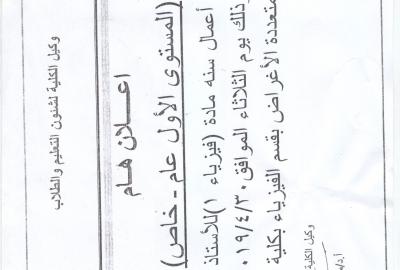 وكيل الكلية لشئون التعليم والطلاب
اعلان هام
(المستوى الأول عام - خاص)
أعمال سنه مادة (فيزياء ١) للأستاذ
وذلك يوم الثلاثاء الموافق ٠١٩/٤/٣٠
متعددة الأغراض بقسم الفيزياء بكلية
وكيل الكلية
أ.د/